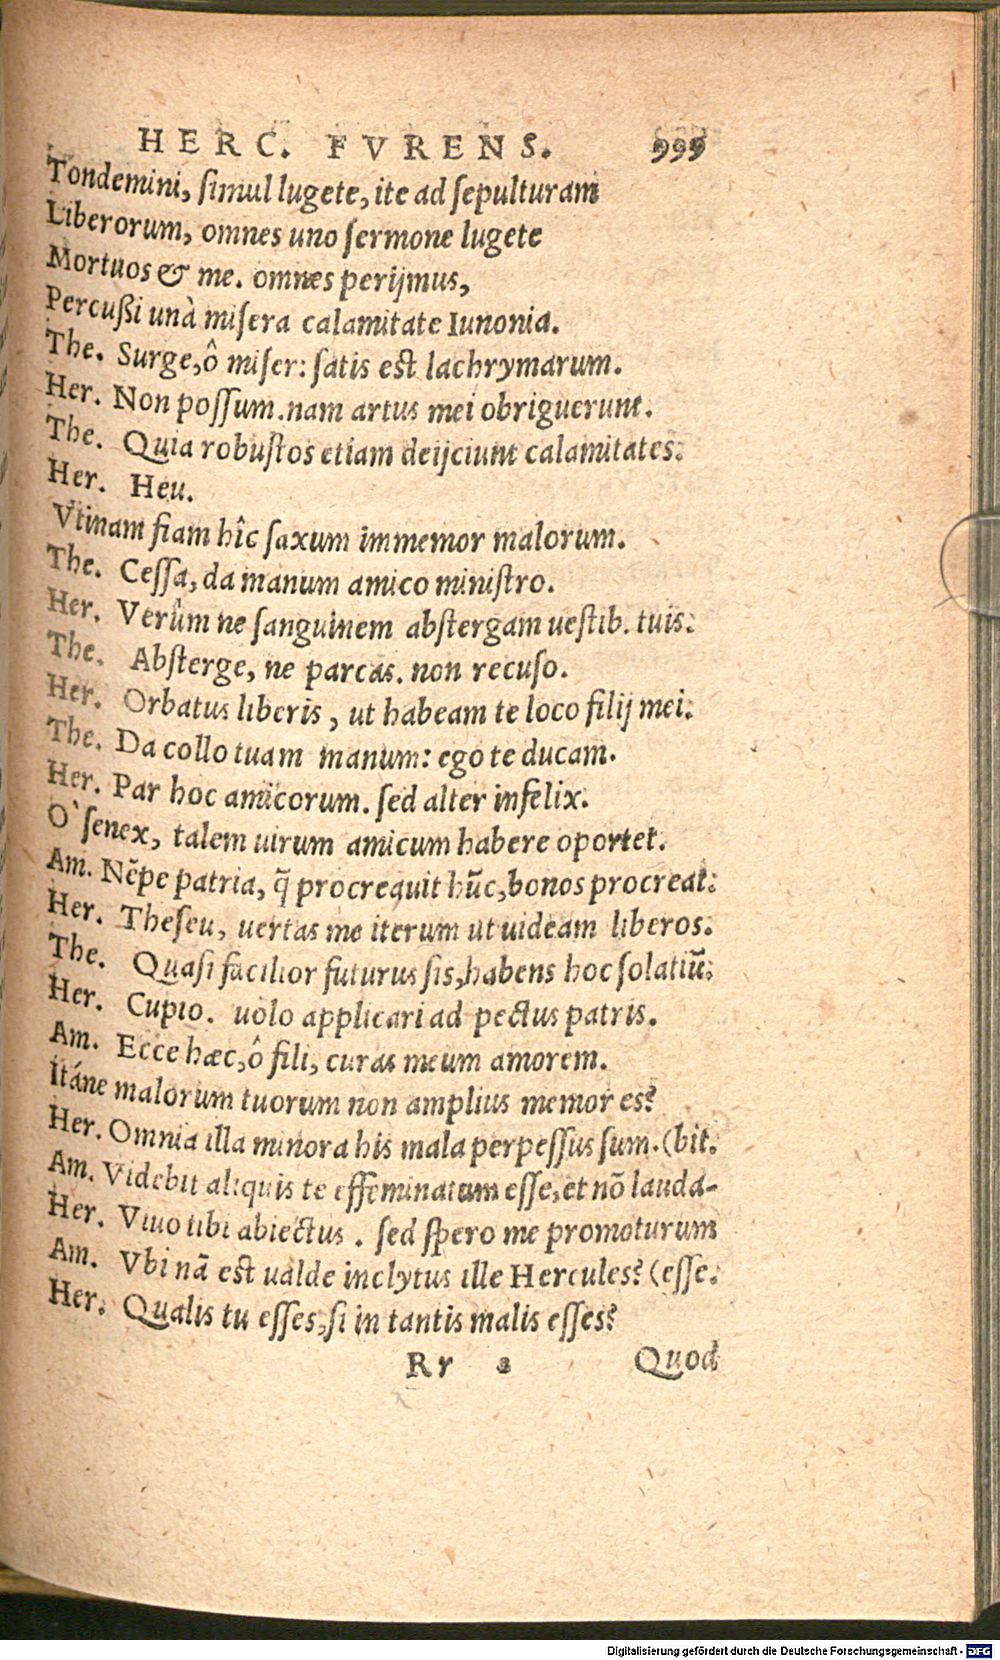 HERC. FVRENS. 999
Tondemini, simul lugete, ite ad sepulturam
Liberorum, omnes uno sermone lugete
Mortuos & me. omnes perijmus,
Percußi unà misera calamitate Iunonia.
The. Surge, ô miser: satis est lachrymarum.
Her. Non possum. nam artus mei obriguerunt.
The. Quia robustos etiam deijciunt calamitates.
Her. Heu.
Vtinam fiam hîc saxum immemor malorum.
The. Cessa, da manum amico ministro.
Her. Verùm ne sanguinem abstergam uestib. tuis.
The. Absterge, ne parcas. non recuso.
Her. Orbatus liberis, ut habeam te loco filij mei.
The. Da collo tuam manum: ego te ducam.
Her. Par hoc amicorum. sed alter infelix.
O` senex, talem uirum amicum habere oportet.
Am. Nẽpe patria, q̃ procreauit hũc, bonos procreat.
Her. Theseu, uertas me iterum ut uideam liberos.
The. Quasi facilior futurus sis, habens hoc solatiũ.
Her. Cupio. uolo applicari ad pectus patris.
Am. Ecce hæc, ô fili, curas meum amorem.
Itáne malorum tuorum non amplius memor es?
Her. Omnia illa minora his mala perpessus sum. (bit.
Am. Videbit aliquis te effeminatum esse, et nõ lauda-
Her. Viuo tibi abiectus. sed spero me promoturum
Am. Vbi nã est ualde inclytus ille Hercules? (esse.
Her. Qualis tu esses, si in tantis malis esses?
Rr 2 Quod
Digitalisierung gefördert durch die Deutsche Forschungsgemeinschaft - DFG